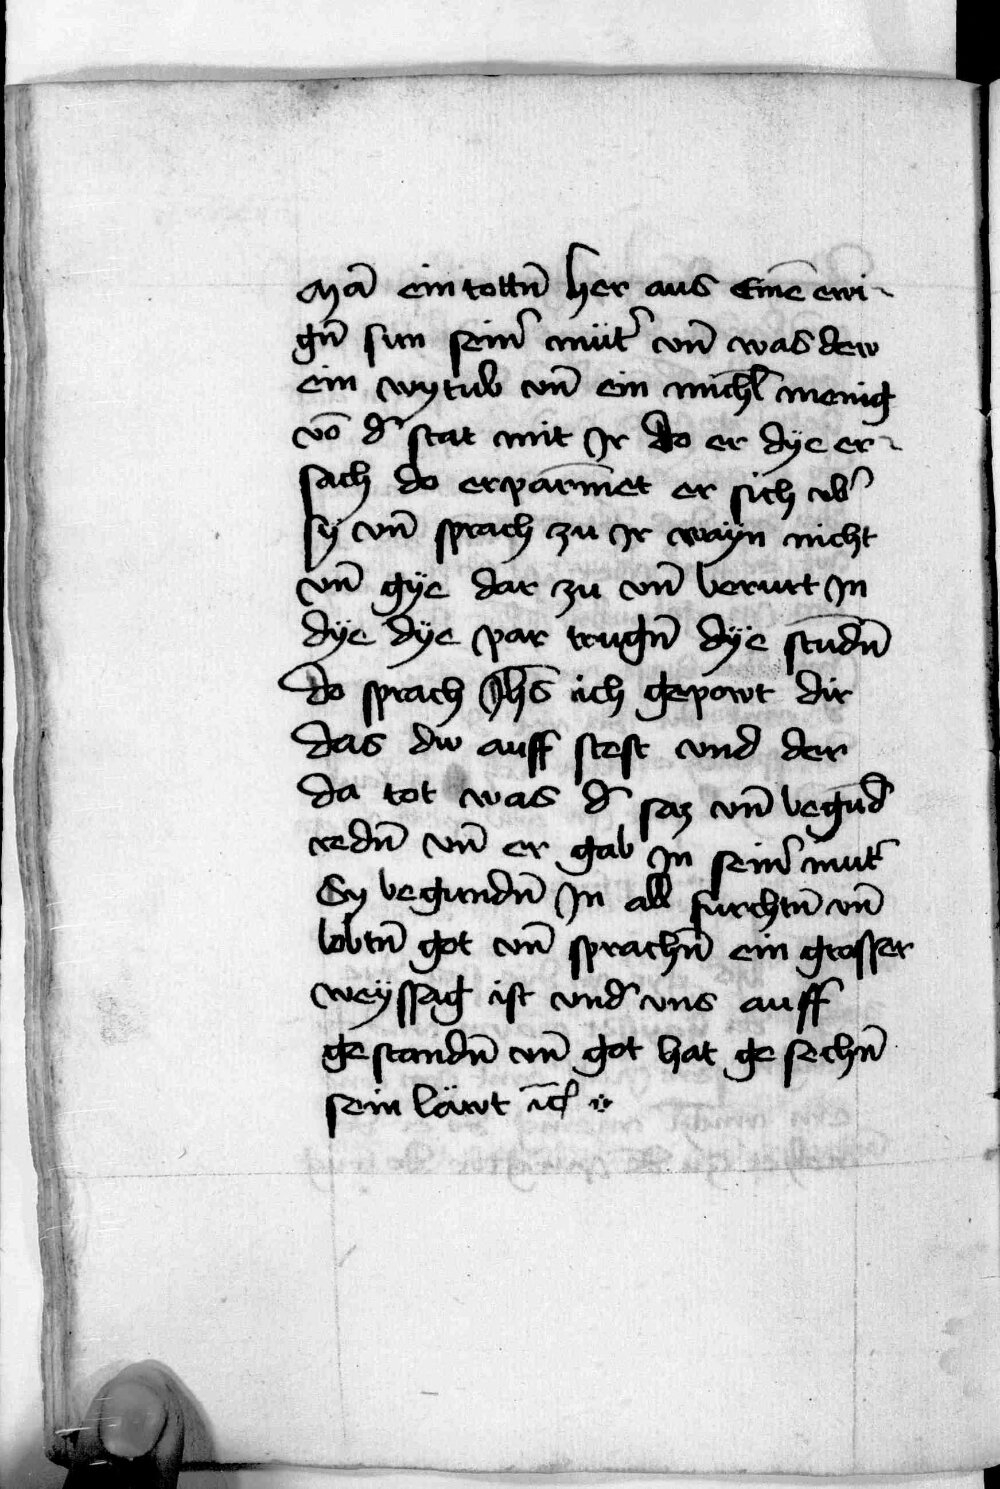 Mā ein tottn̄ her aus Einē ewi-
gn̄ sun sein̾ müt̾ vn̄ was dew
ein wytub vn̄ ein mich̄l menig
vō d̾ stat mit Jr do er dÿe er-
sach do erparm̄et er sich vb̾
sÿ vn̄ sprach zu Jr waÿn nicht
vn̄ gÿe dar zu vn̄ berurt Jn
dÿe dÿe par trugn̄ dÿe stūdn̄
do sprach Jh̄s ich gepowt dir
das dw auff stest vnd der
da tot was d̾ saz vn̄ begūd
redn̄ vn̄ er gab Jn sein̾ mut̾
Sy begundn̄ Jn all furchtn̄ vn̄
lobtn̄ got vn̄ sprachn̄ ein grosser
weÿssag ist vnd̾ vns auff
gestandn̄ vn̄ got hat gesechn̄
sein läwt